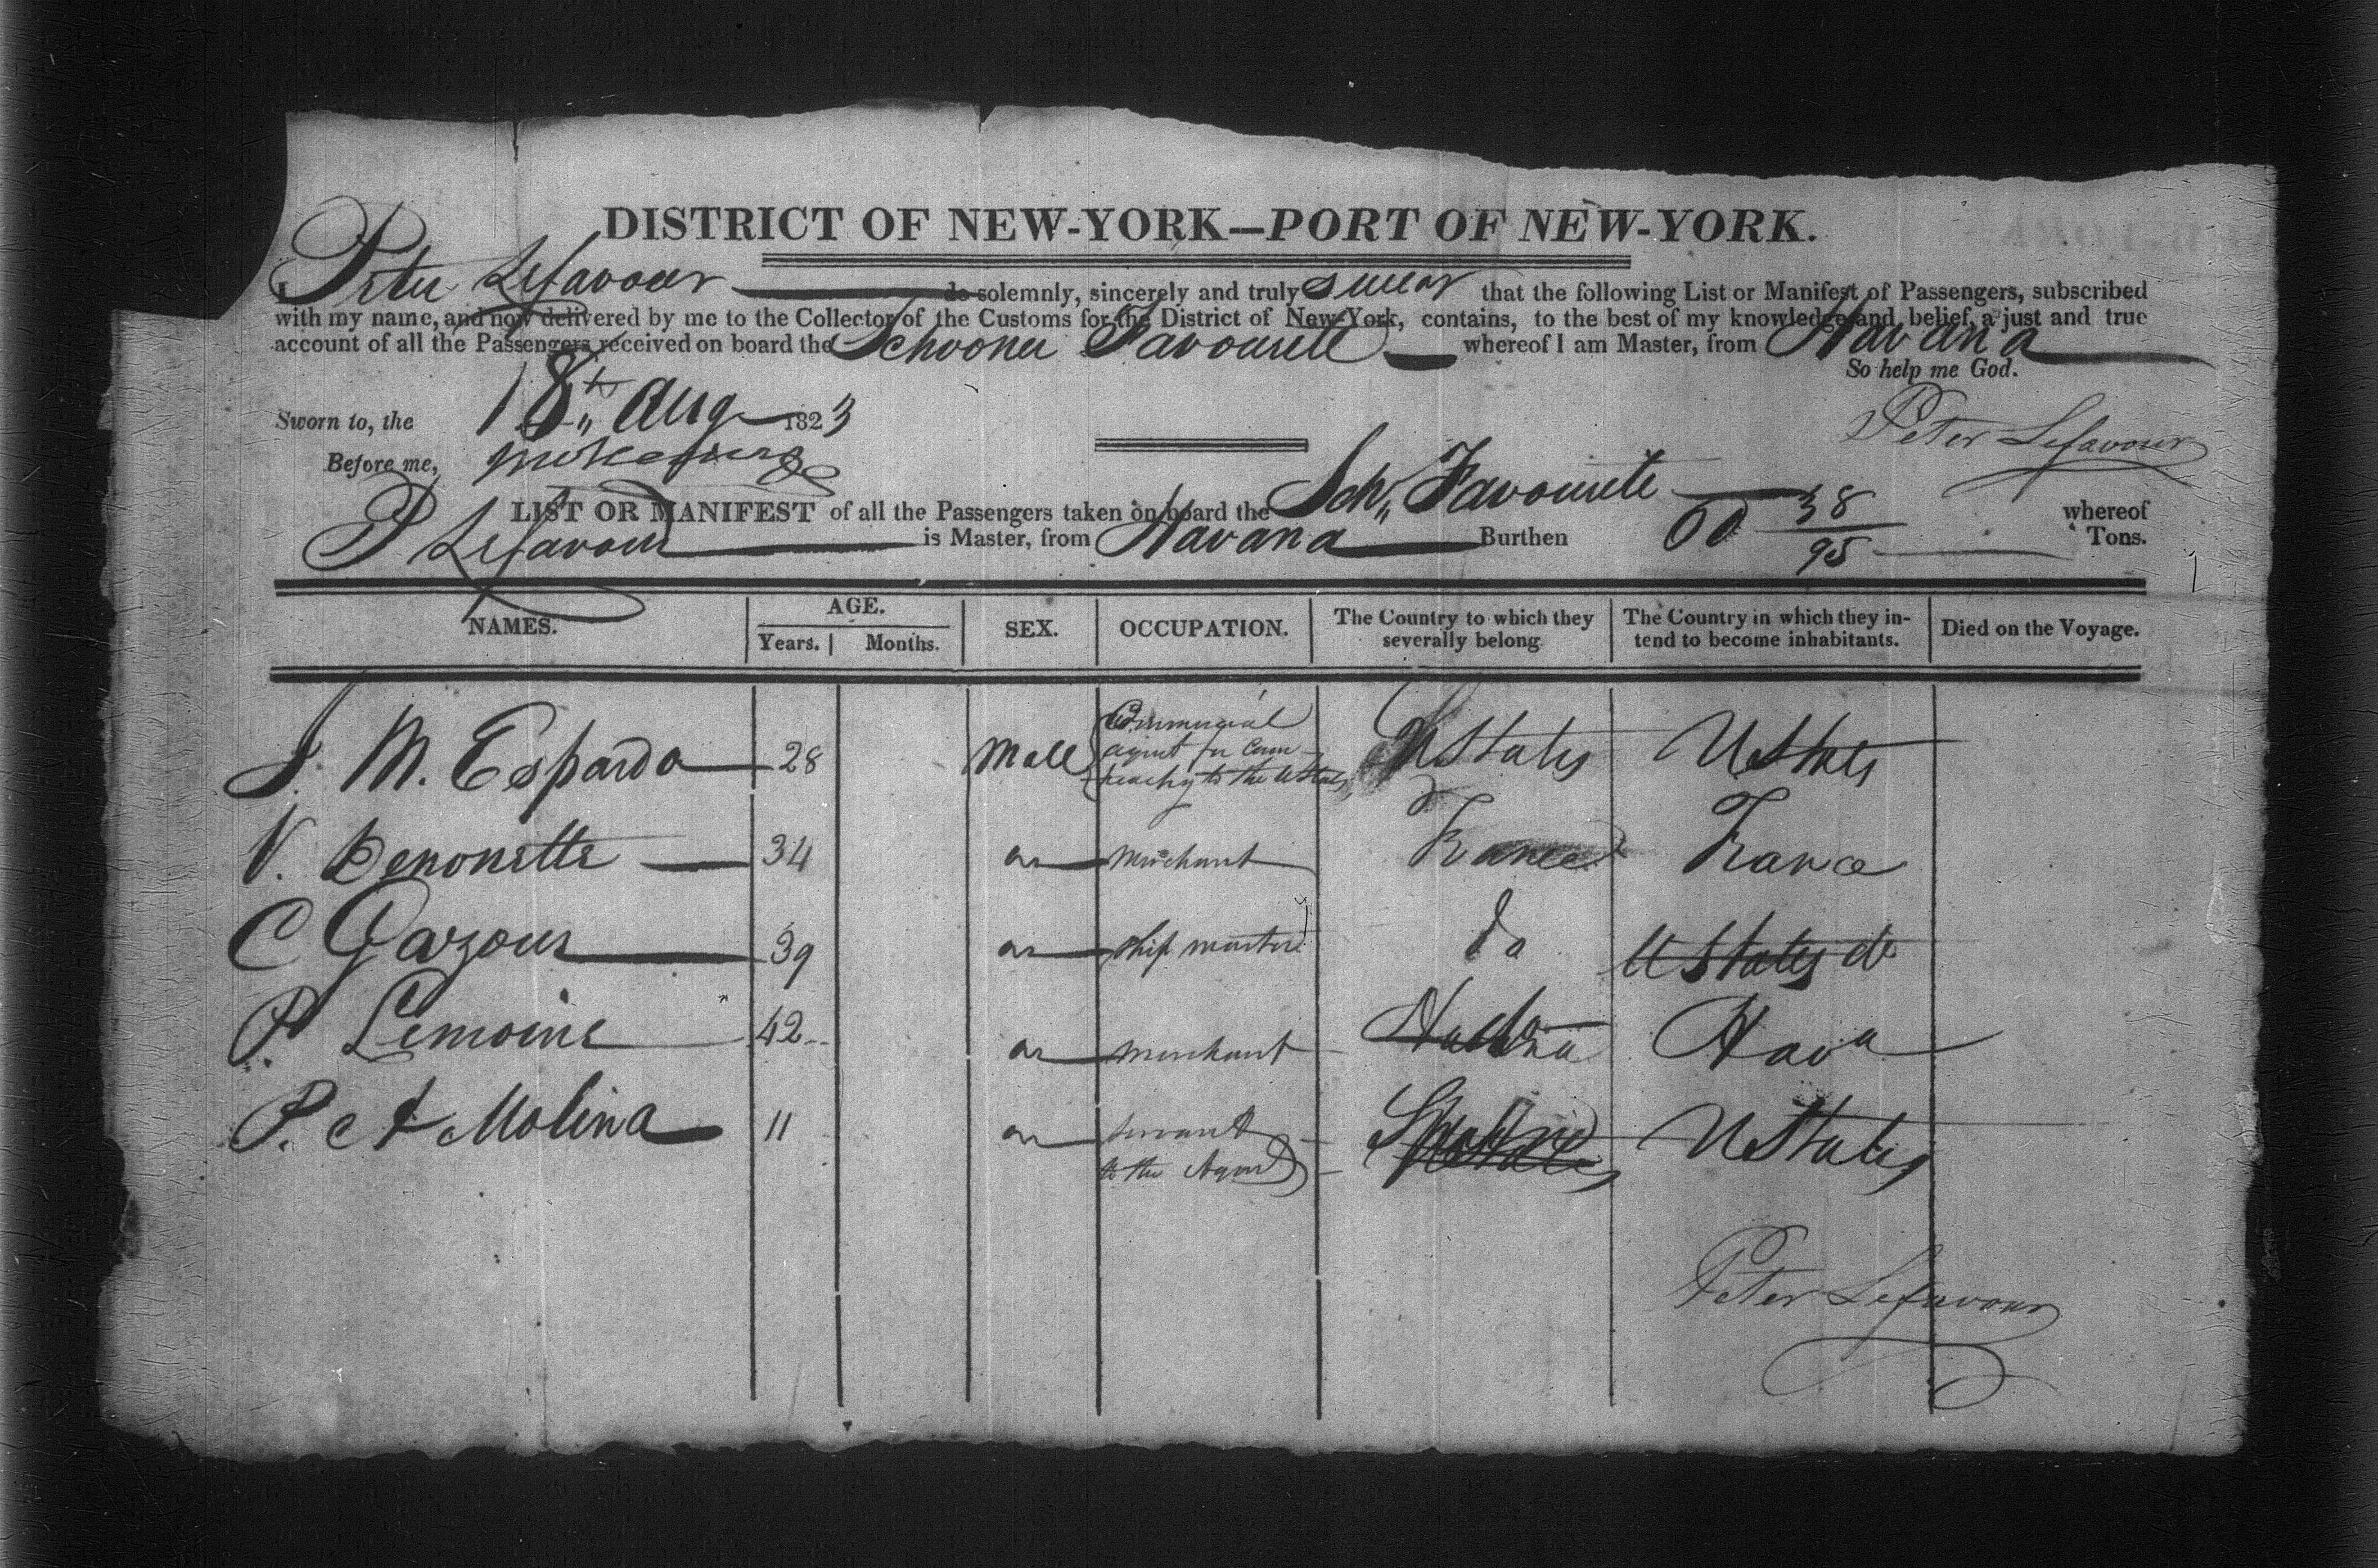 DISTRICT OF NEW-YORK—PORT OF NEW-YORK.
I Peter Lefavour do solemnly, sincerely and truly swear that the following List or Manifest of Passengers, subscribed
with my name, and now delivered by me to the Collector of the Customs for the District of New-York, contains, to the best of my knowledge and belief, a just and true
account of all the Passengers received on board the Schooner Favourite whereof I am Master, from Havana
So help me God.
Sworn to, the 18th Aug 1823
Peter Lefavour
Before me,
LIST OR MANIFEST of all the Passengers taken on board the Sch,, Favourite whereof
P Lefavour is Master, from Havana Burthen 60 38/95 Tons.
NAMES. AGE. Years. Months. SEX. OCCUPATION. The Country to which they severally belong The Country in which they intend to become inhabitants. Died on the Voyage.
J. M. Espardo 28 Male Commercial agent for Cam- peachy to the U States U States U States
V. Benonette 34 do merchant France France
C Gazous 39 do ship master do U States do
P Lemoine 42 do merchant Havana Hava
P. A Molina 11 do servant to the Agent U States
Peter Lefavour